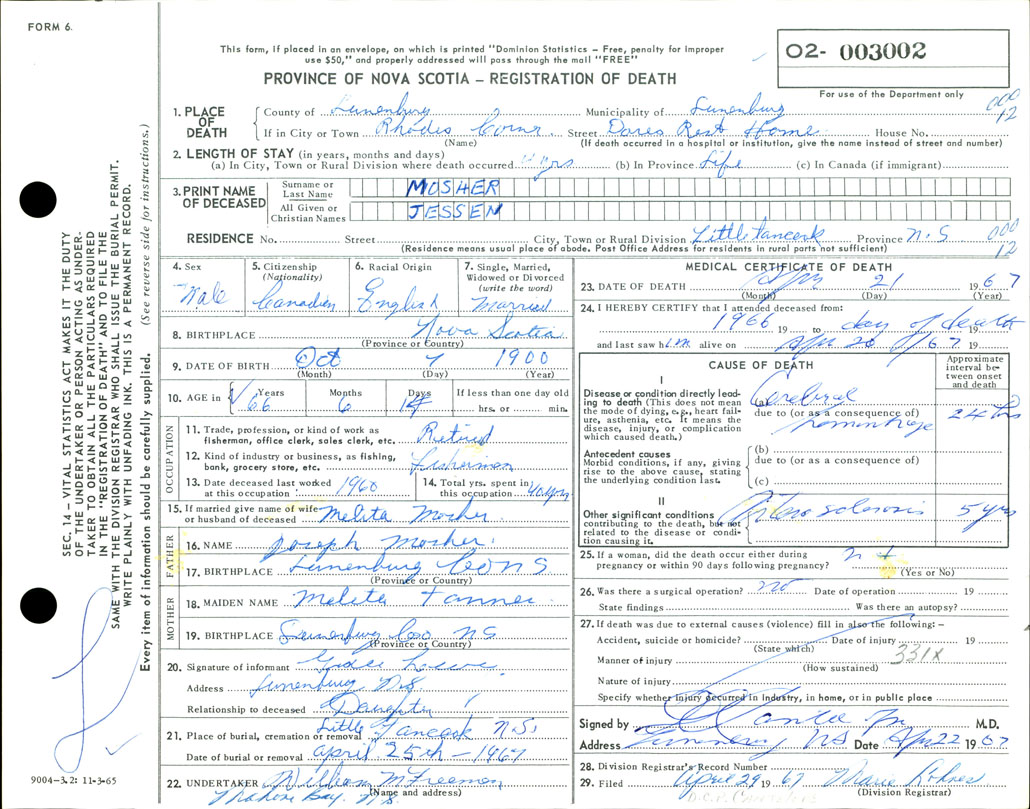 FORM 6.
This form, if placed in an envelope, on which is printed "Dominion Statistics – Free, penalty for improper
use $50," and properly addressed will pass through the mail "FREE"
PROVINCE OF NOVA SCOTIA – REGISTRATION OF DEATH
O2- 003002
For use of the Department only
000
12
1. PLACE OF DEATH
County of Lunenburg Municipality of Lunenburg
If in City or Town Rhodes Corner Street Dares Rest Home House No.
(Name) (If death occurred in a hospital or institution, give the name instead of street and number)
2. LENGTH OF STAY (in years, months and days)
(a) In City, Town or Rural Division where death occurred yrs (b) In Province Life (c) In Canada (if immigrant)
3. PRINT NAME OF DECEASED
Surname or Last Name MOSHER
All Given or Christian Names JESSEN
RESIDENCE No. Street City, Town or Rural Division Little Tancook Province N.S
(Residence means usual place of abode. Post Office Address for residents in rural parts not sufficient)
000
12
4. Sex Male
5. Citizenship (Nationality) Canadian
6. Racial Origin English
7. Single, Married, Widowed or Divorced (write the word) Married
8. BIRTHPLACE Nova Scotia
(Province or Country)
9. DATE OF BIRTH Oct 7 1900
(Month) (Day) (Year)
10. AGE in Years 66 Months 6 Days 14 If less than one day old
hrs. or min.
OCCUPATION
11. Trade, profession, or kind of work as fisherman, office clerk, sales clerk, etc. Retired
12. Kind of industry or business, as fishing, bank, grocery store, etc. Fisherman
13. Date deceased last worked at this occupation 1960
14. Total yrs. spent in this occupation 40 yrs
15. If married give name of wife or husband of deceased Melita Mosher
FATHER
16. NAME Joseph Mosher
17. BIRTHPLACE Lunenburg Co N S
(Province or Country)
MOTHER
18. MAIDEN NAME Melita Tanner
19. BIRTHPLACE Lunenburg Co N.S.
(Province or Country)
20. Signature of informant
Address Lunenburg N.S.
Relationship to deceased Daughter
21. Place of burial, cremation or removal Little Tancook N.S.
Date of burial or removal April 25th - 1967
22. UNDERTAKER William M Freeman
(Name and address)
Mahone Bay N.S.
MEDICAL CERTIFICATE OF DEATH
23. DATE OF DEATH Apr 21 1967
(Month) (Day) (Year)
24. I HEREBY CERTIFY that I attended deceased from:
1966 19 to day of death
and last saw him alive on Apr 20 67 19
CAUSE OF DEATH
Approximate interval between onset and death
I
Disease or condition directly leading to death (This does not mean the mode of dying, e.g., heart failure, asthenia, etc. It means the disease, injury, or complication which caused death.)
(a) Cerebral
due to (or as a consequence of)
hemorrhage
24 hrs
Antecedent causes
Morbid conditions, if any, giving rise to the above cause, stating the underlying condition last.
(b)
due to (or as a consequence of)
(c)
II
Other significant conditions contributing to the death, but not related to the disease or condition causing it.
Arteriosclerosis 5 yrs
25. If a woman, did the death occur either during
pregnancy or within 90 days following pregnancy?
(Yes or No)
26. Was there a surgical operation? no Date of operation 19
State findings Was there an autopsy?
27. If death was due to external causes (violence) fill in also the following: –
Accident, suicide or homicide? Date of injury 19
(State which)
331X
Manner of injury
(How sustained)
Nature of injury
Specify whether injury occurred in industry, in home, or in public place
Signed by M.D.
Address NS Date Apr 22 1967
28. Division Registrar's Record Number
29. Filed April 29 1967
(Division Registrar)
SEC. 14 – VITAL STATISTICS ACT MAKES IT THE DUTY
OF THE UNDERTAKER OR PERSON ACTING AS UNDER-
TAKER TO OBTAIN ALL THE PARTICULARS REQUIRED
IN THE "REGISTRATION OF DEATH" AND TO FILE THE
SAME WITH THE DIVISION REGISTRAR WHO SHALL ISSUE THE BURIAL PERMIT.
WRITE PLAINLY WITH UNFADING INK. THIS IS A PERMANENT RECORD.
Every item of information should be carefully supplied. (See reverse side for instructions.)
9004-3.2: 11-3-65